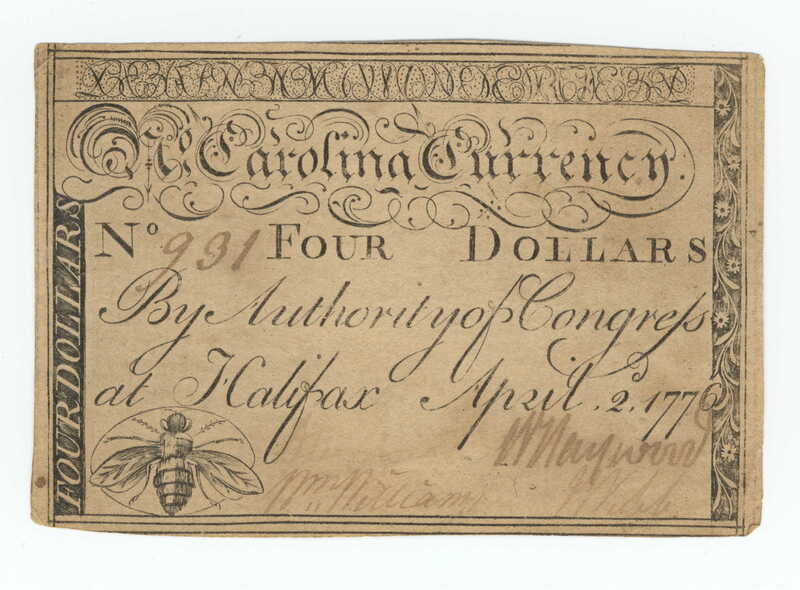 No Carolina Currency.
No 931 FOUR DOLLARS
By Authority of Congreſs
at Halifax April. 2d. 1776
FOUR DOLLARS
W Haywood
Wm Williams